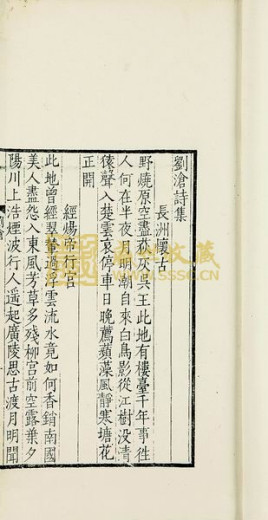 劉滄詩集
長洲懷古
野燒原空盡荻灰吳王此地有樓臺千年事徃
人何在半夜月明潮自來白鳥影從江樹没清
猿聲入楚雲哀停車日晚薦蘋藻風靜寒塘花
正開
經煬帝行宮
此地曾經翠輦過浮雲流水竟如何香銷南國
美人盡怨入東風芳草多殘柳宮前空露葉夕
陽川上浩煙波行人遥起廣陵思古渡月明聞